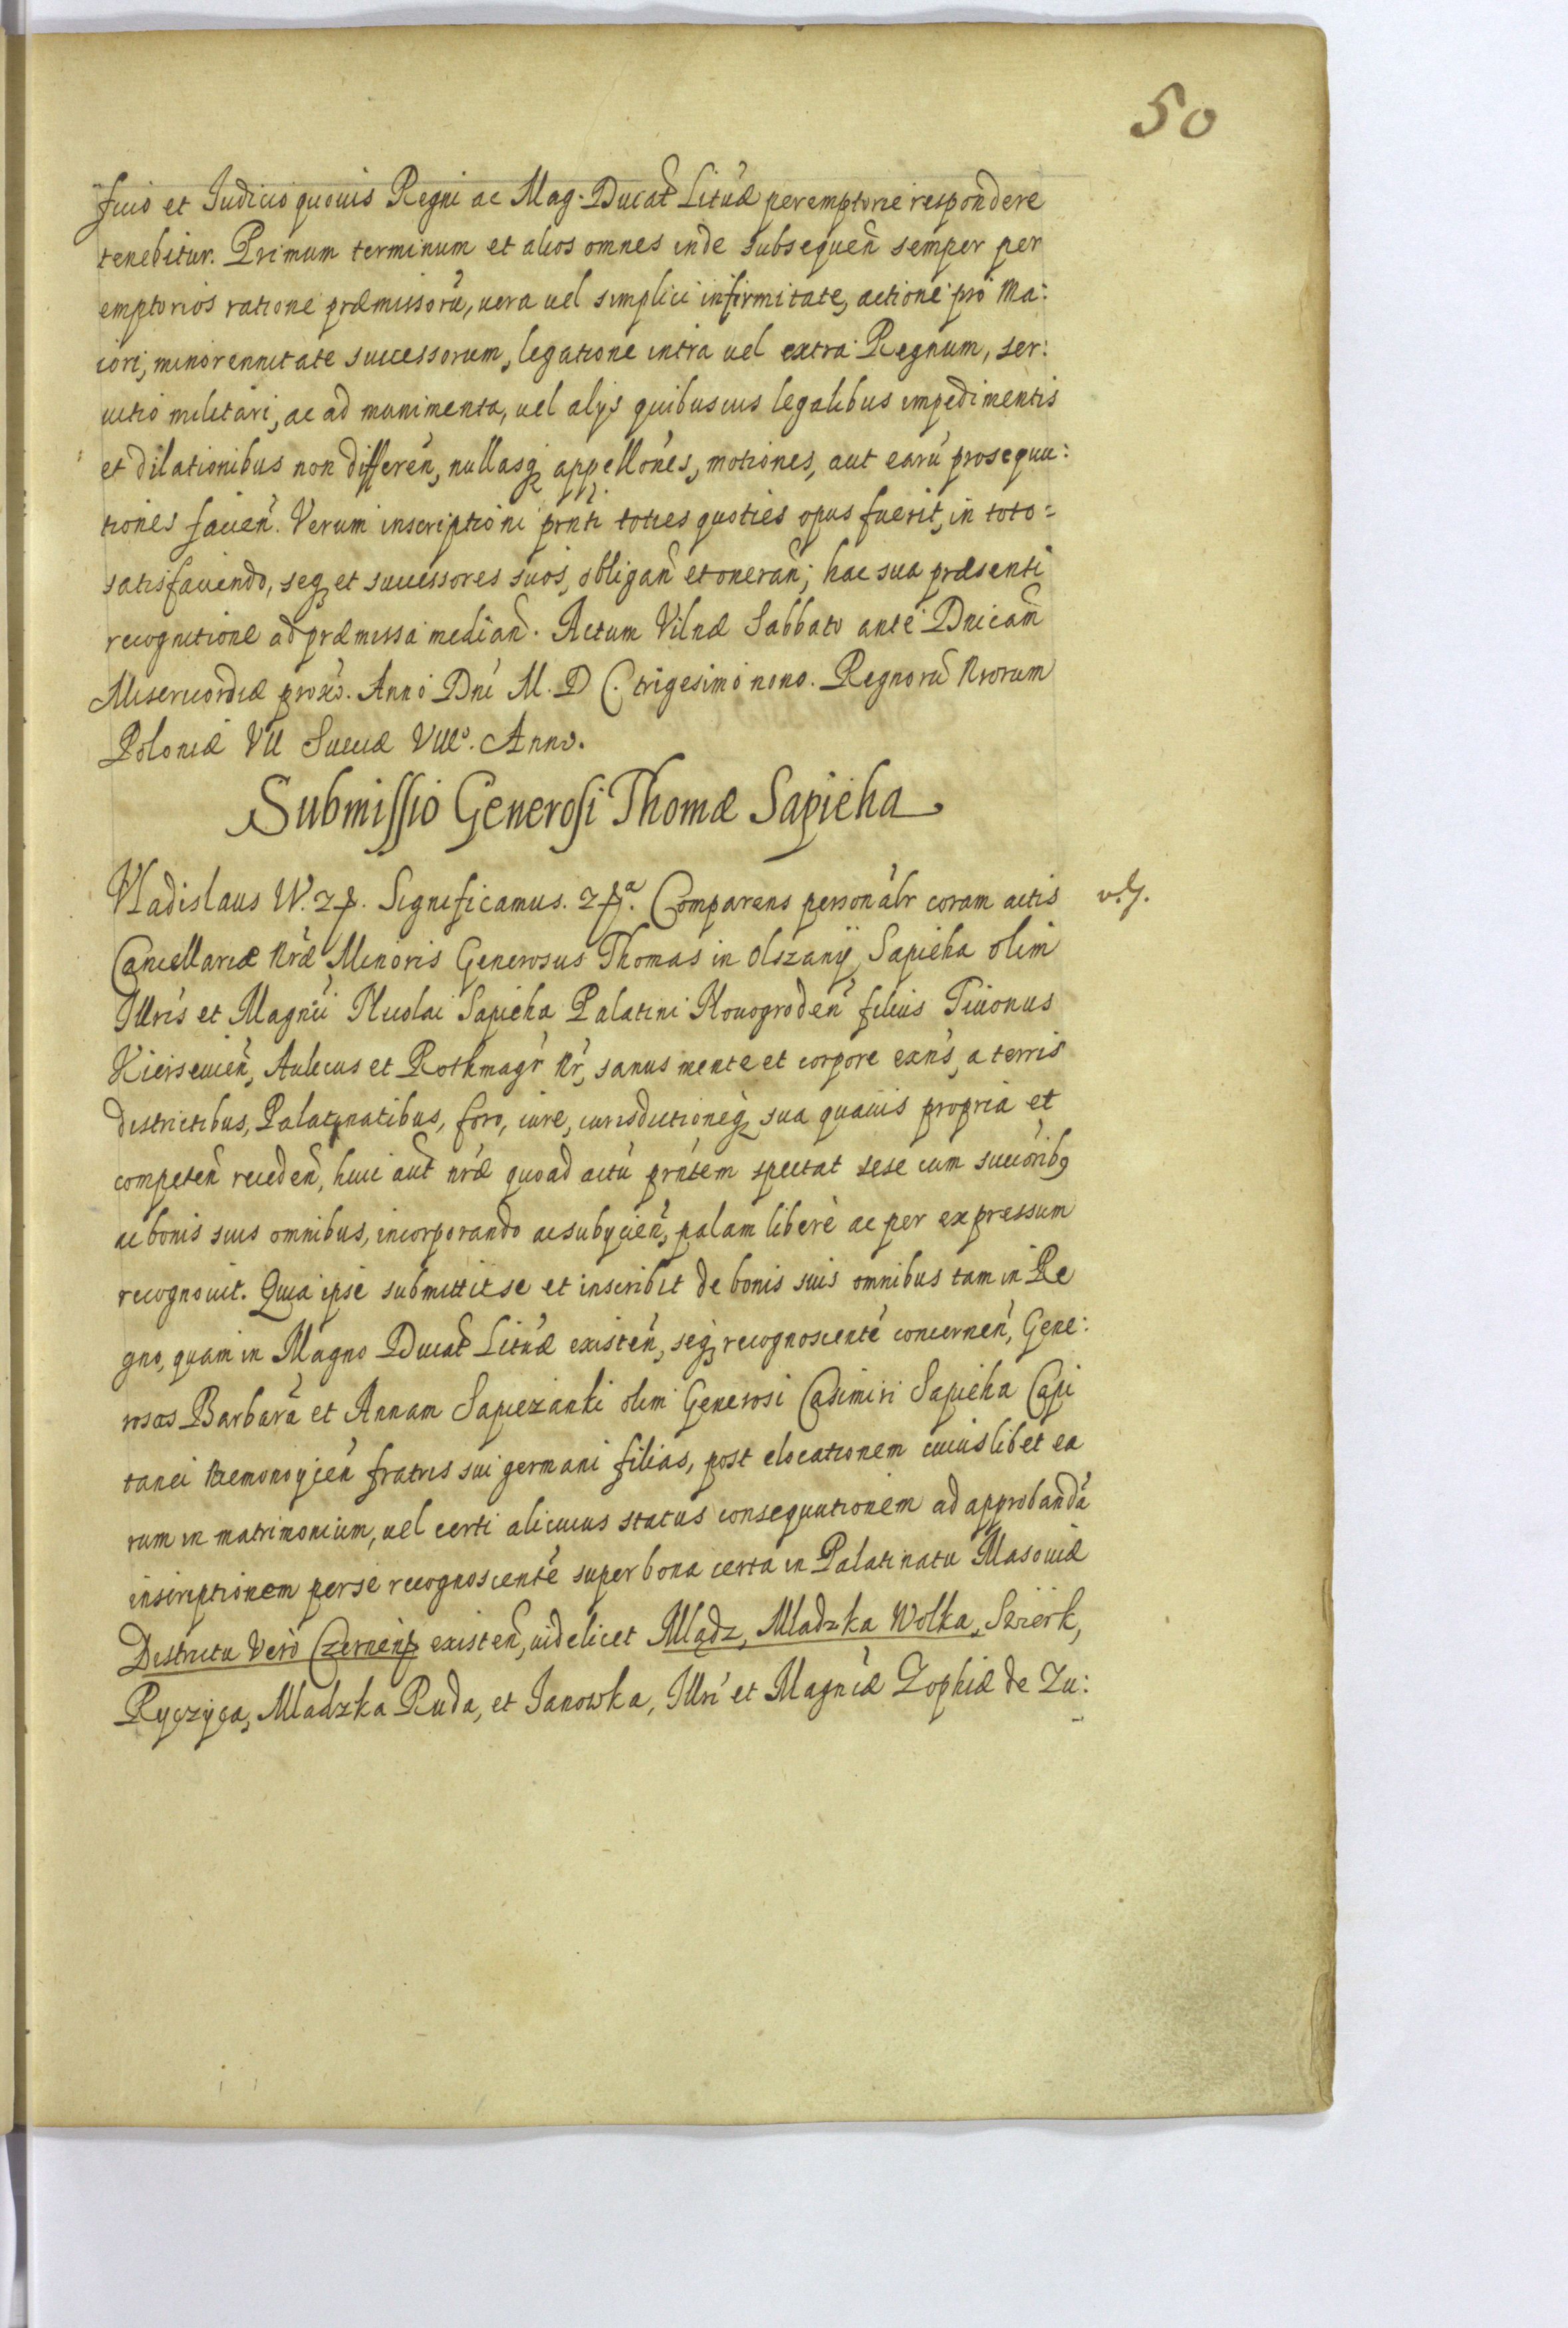 50
ficio et Iudicio quouis Regni ac Mag. Ducat̃ Litũæ peremptorie respondere
tenebitur. Primum terminum et alios omnes inde subsequeñ semper per
emptorios ratione præmissorũ, uera uel simplici infirmitate, actione pro Ma:
iori, minorennitate successorum, legatione intra uel extra Regnum, ser:
uitio militari, ac ad munimenta, uel alijs quibusuis legalibus impedimentis
et dilationibus non differeñ, nullasq3 appellões, motiones, aut earũ prosequu:
tiones facieñ. Verum inscriptioni prñti toties quoties opus fuerit, in toto=
satisfaciendo, seq3 et successores suos, obligañ et onerañ; hac sua præsenti
recognitione ad præmissa mediañ. Actum Vilnæ Sabbato ante Dnicam̃
Misericordiæ prox̃o. Anno Dnĩ M. D C. trigesimo nono. Regnorũ Nrorum
Poloniæ VII Sueciæ VIIIº. Anno.
Submissio Generosi Thomæ Sapieha
Vladislaus IV. zp. Significamus. zpª. Comparens personãlr coram actis
v.g.
Cancellariæ Nrǽ Minoris Generosus Thomas in Olszany Sapieha olim
Illrĩs et Magnĩci Nicolai Sapieha Palatini Nouogrodeñ filius Tiuonus
Kiersouieñ, Aulicus et Rothmagr̃ Nr̃, sanus mente et corpore exñs, a terris
districtibus, Palatinatibus, foro, iure, iurisdictioneq3 sua quauis propria et
competeñ recedeñ, huic aut̃ nrǽ quoad actũ prñtem spectat sese cum succõrib9
ac bonis suis omnibus, incorporando ac subijcieñ, palam libere ac per expressum
recognouit. Quia ipse submittit se et inscribit de bonis suis omnibus tam in Re
gno, quam in Magno Ducat̃ Litũæ existeñ, seq3 recognoscentẽ concerneñ, Gene:
rosas Barbarã et Annam Sapiezanki olim Generosi Casimiri Sapieha Capi
tanei Remonoyceñ fratris sui germani filias, post elocationem cuiuslibet ea
rum in matrimonium, uel certi alicuius status consequutionem ad approbandã
inscriptionem per se recognoscentẽ super bona certa in Palatinatu Masouiæ
Districtu Vero Czernensi existeñ, uidelicet Mlądz, Mladzka Wolka, Swierk,
Ryczyca, Mladzka Ruda, et Janowka, Illrĩ et Magnĩcæ Zophiæ de Zu: